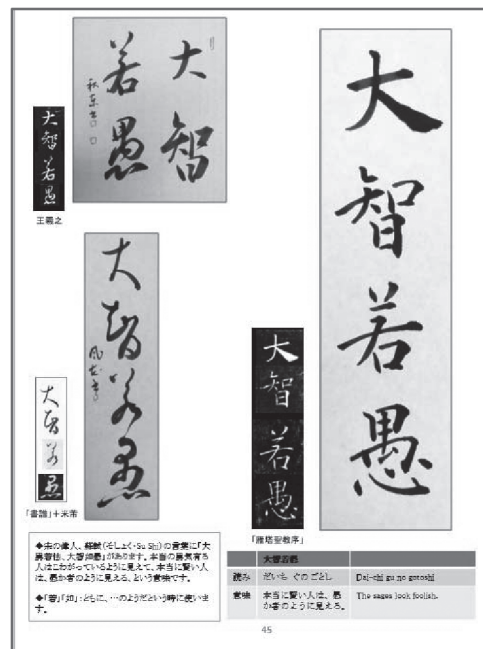 大智
若愚
秋東書
大智若愚
王羲之
大智若愚
大智若愚
「書譜」+米芾
大智若愚
大智若愚
「雁塔聖教序」
◆宋の偉人、蘇軾(そしょく・Su Shi)の言葉に「大
勇若怯、大智如愚」があります。本当の勇気有る
人はこわがっているように見えて、本当に賢い人
は、愚か者のように見える、という意味です。
◆「若」「如」:ともに、…のようだという時に使いま
す。
大智若愚
読み だいち ぐの ごとし Dai-chi gu no gotoshi
意味 本当に賢い人は、愚 The sages look foolish.
か者のように見える。
45